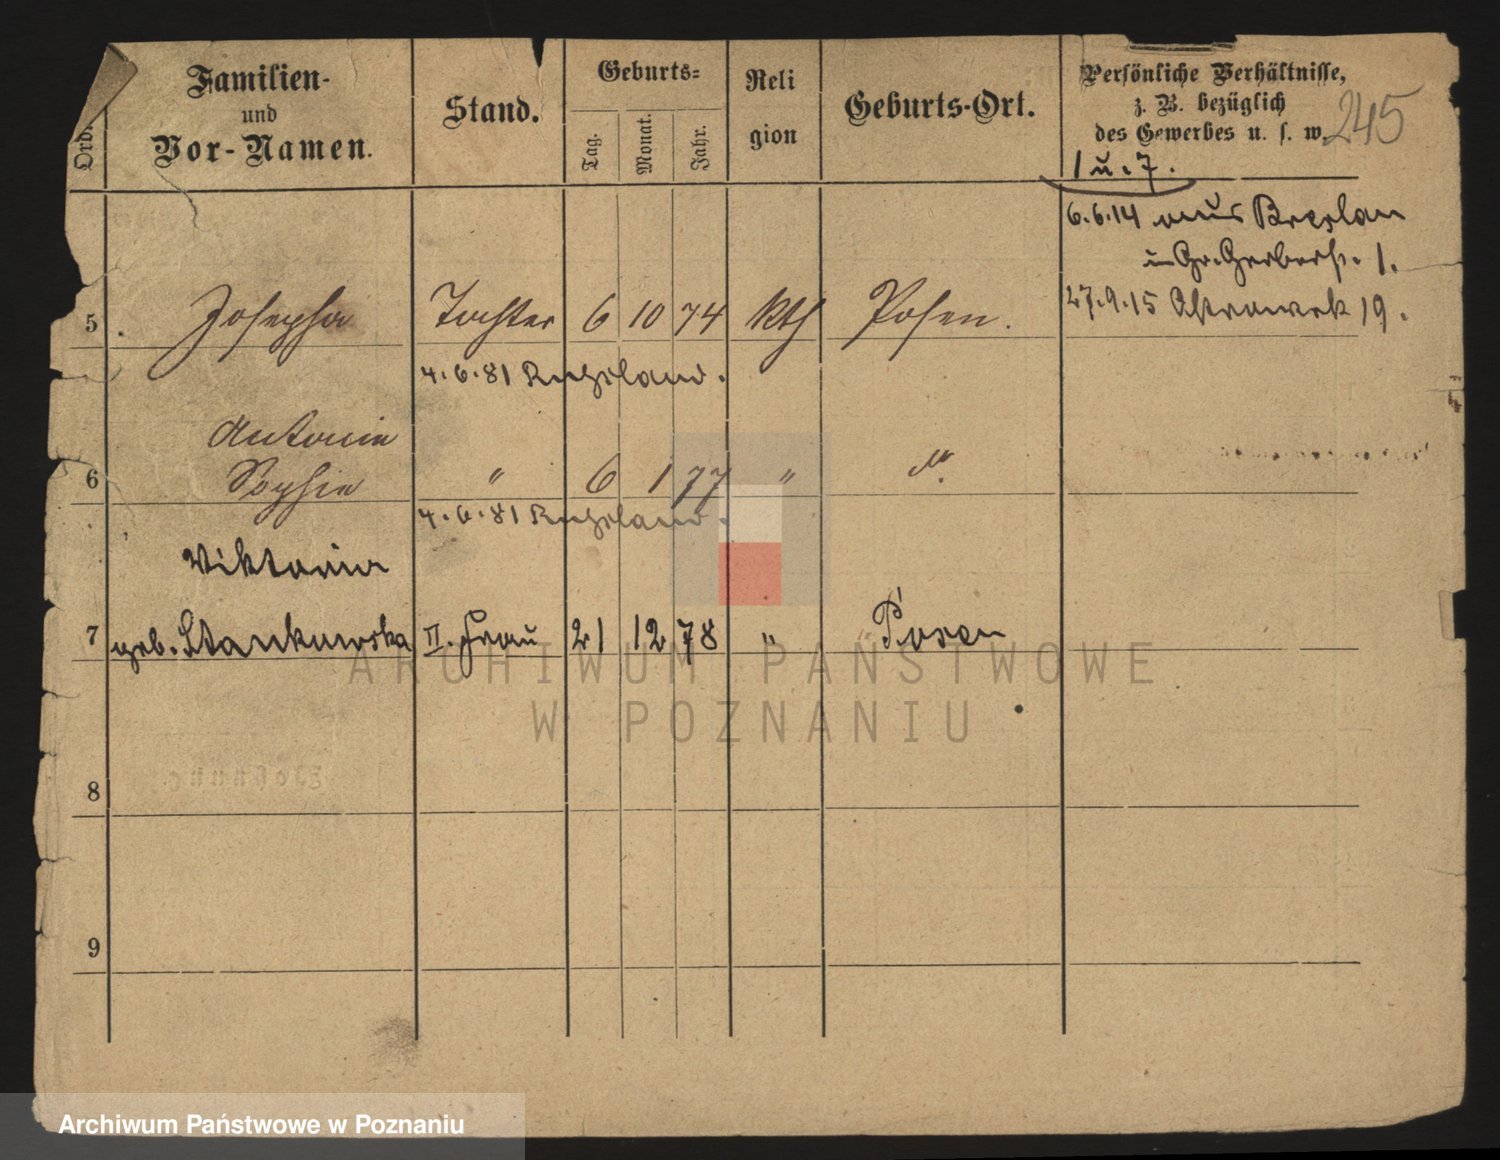 Ord.
Familien-
und
Vor-Namen.
Stand.
Geburts-
Tag.
Monat.
Jahr.
Reli
gion
Geburts-Ort.
Persönliche Verhältnisse,
z. B. bezüglich
des Gewerbes u. s. w.
245
1 u. 7.
6.6.14 aus Breslau
Gr. Gerberstr. 1.
5 Josepha Tochter 6 10 74 kth Posen. 27.9.15 19.
4.6.81 Russland.
Antonie
6 Sophie " 6 1 77 " do.
4.6.81 Russland.
Viktoria
7 geb. Stankowska II. Frau 21 12 78 " Posen
ARCHIWUM PAŃSTWOWE
W POZNANIU
8
9
Archiwum Państwowe w Poznaniu